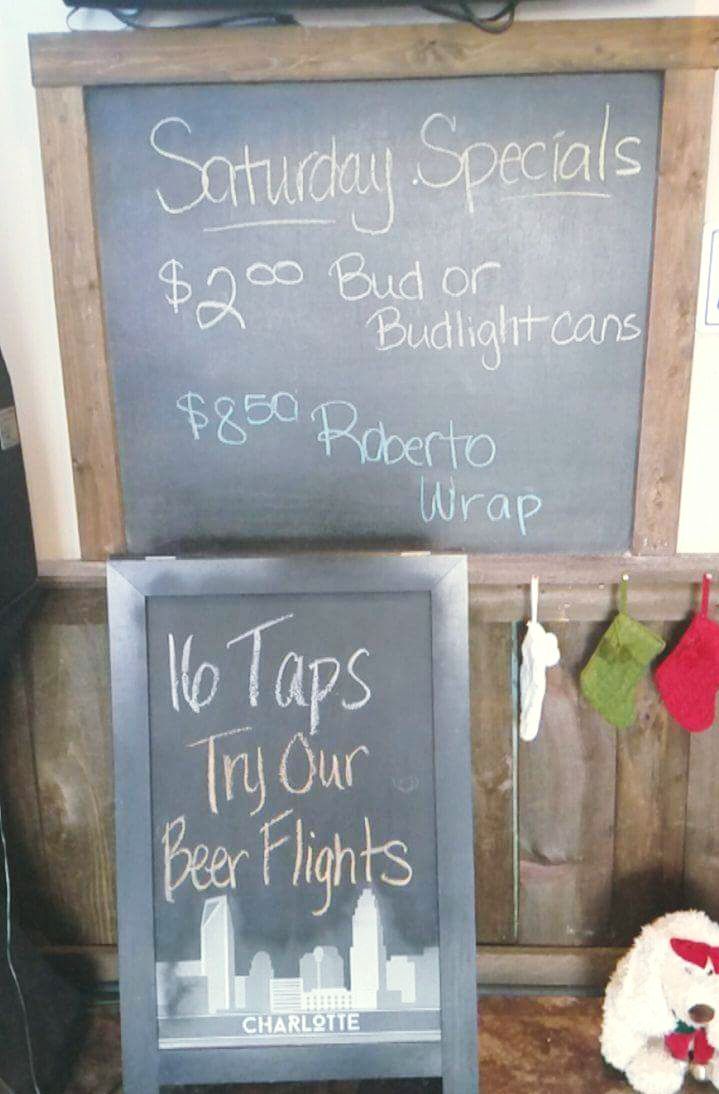 Saturday Specials
$2.00 Bud or
Budlight cans
$8.50 Roberto
Wrap
16 Taps
Try Our
Beer Flights
CHARLOTTE